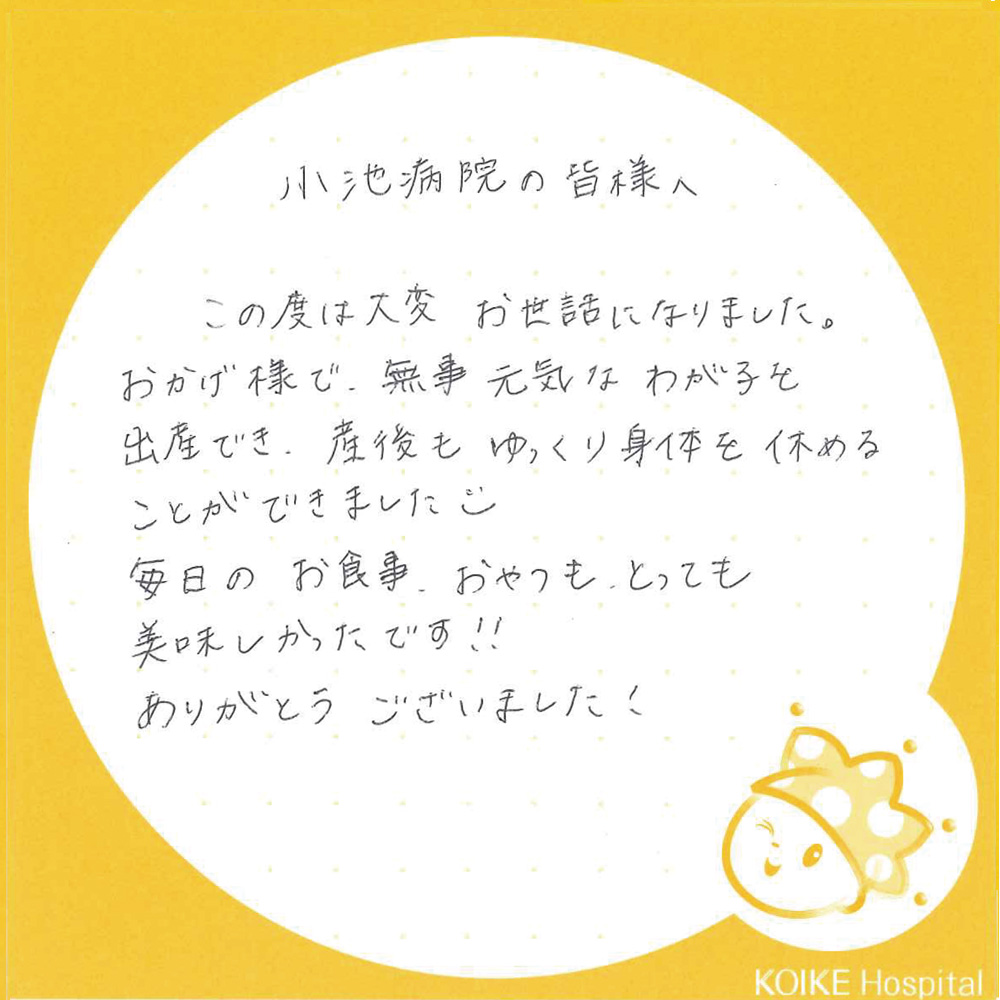 小池病院の皆様へ
この度は大変 お世話になりました。
おかげ様で、無事 元気な わが子を
出産でき、産後も ゆっくり身体を 休める
ことができました
毎日の お食事、おやつも、とっても
美味しかったです!!
ありがとう ございました!
KOIKE Hospital